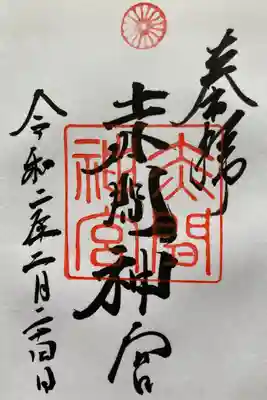 奉拝
赤間神宮
赤間神宮
令和二年二月二十四日